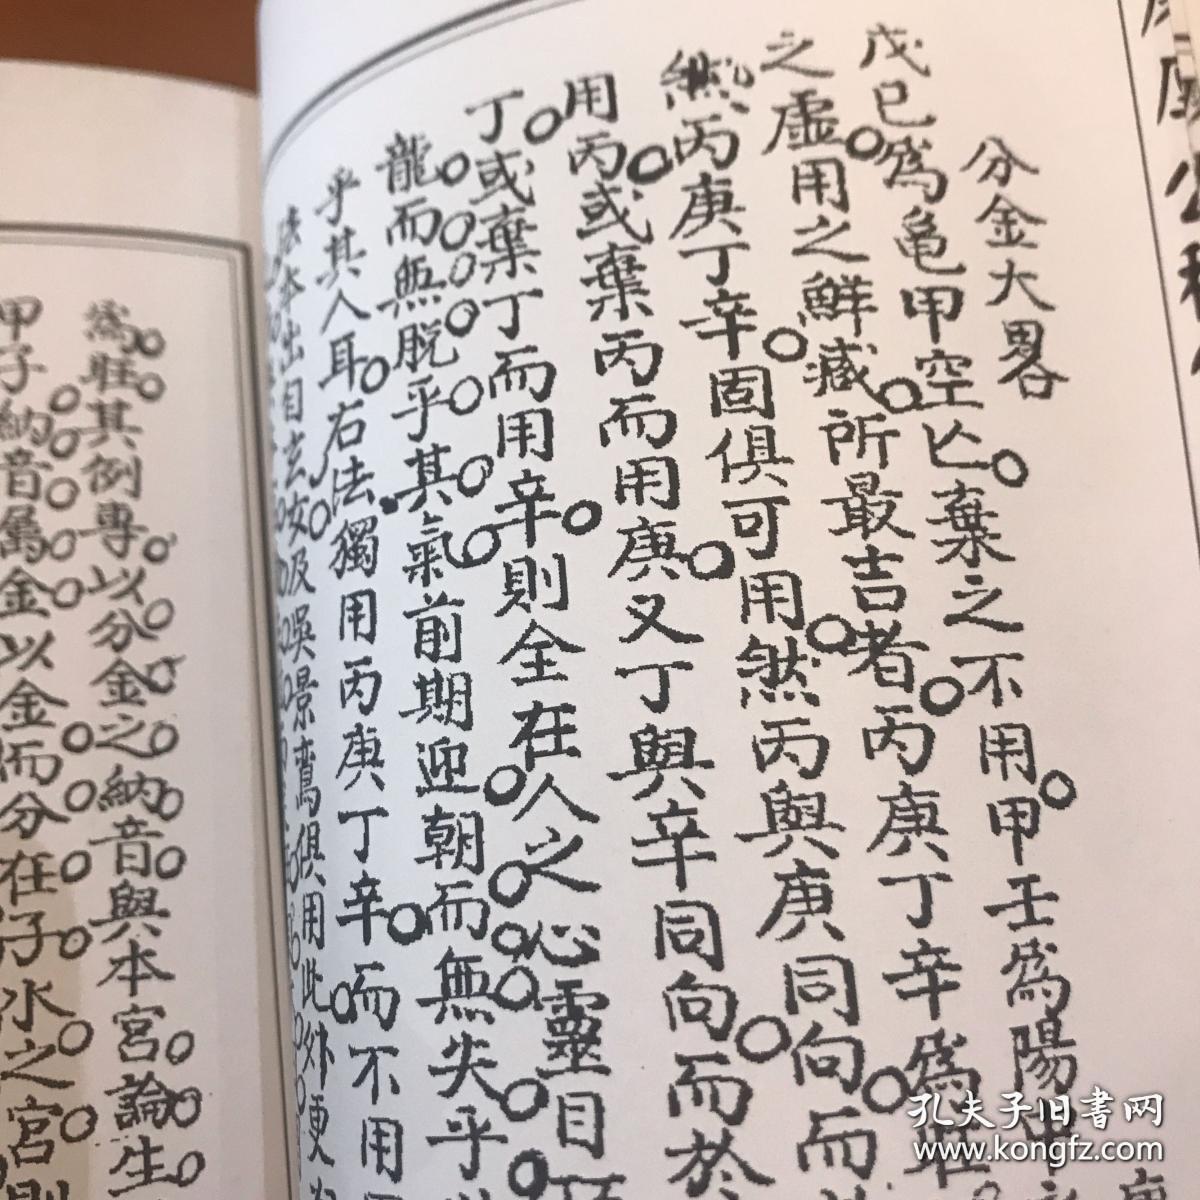 分金大畧
戊己爲龜甲空亾棄之不用甲壬爲陽
之虛用之鮮減所最吉者丙庚丁辛爲旺
然丙庚丁辛固俱可用然丙與庚同向而
用丙或棄丙而用庚又丁與辛同向而於
丁或棄丁而用辛則全在人之心靈目
龍而無脫乎其氣前期迎朝而無失乎
乎其人耳右法獨用丙庚丁辛而不用
法本出自玄女及吳景鸞俱用此外更
爲駐其例專以分金之納音與本宮論生
甲子納音屬金以金而分在子水之宮則
孔夫子旧書网
www.kongfz.com